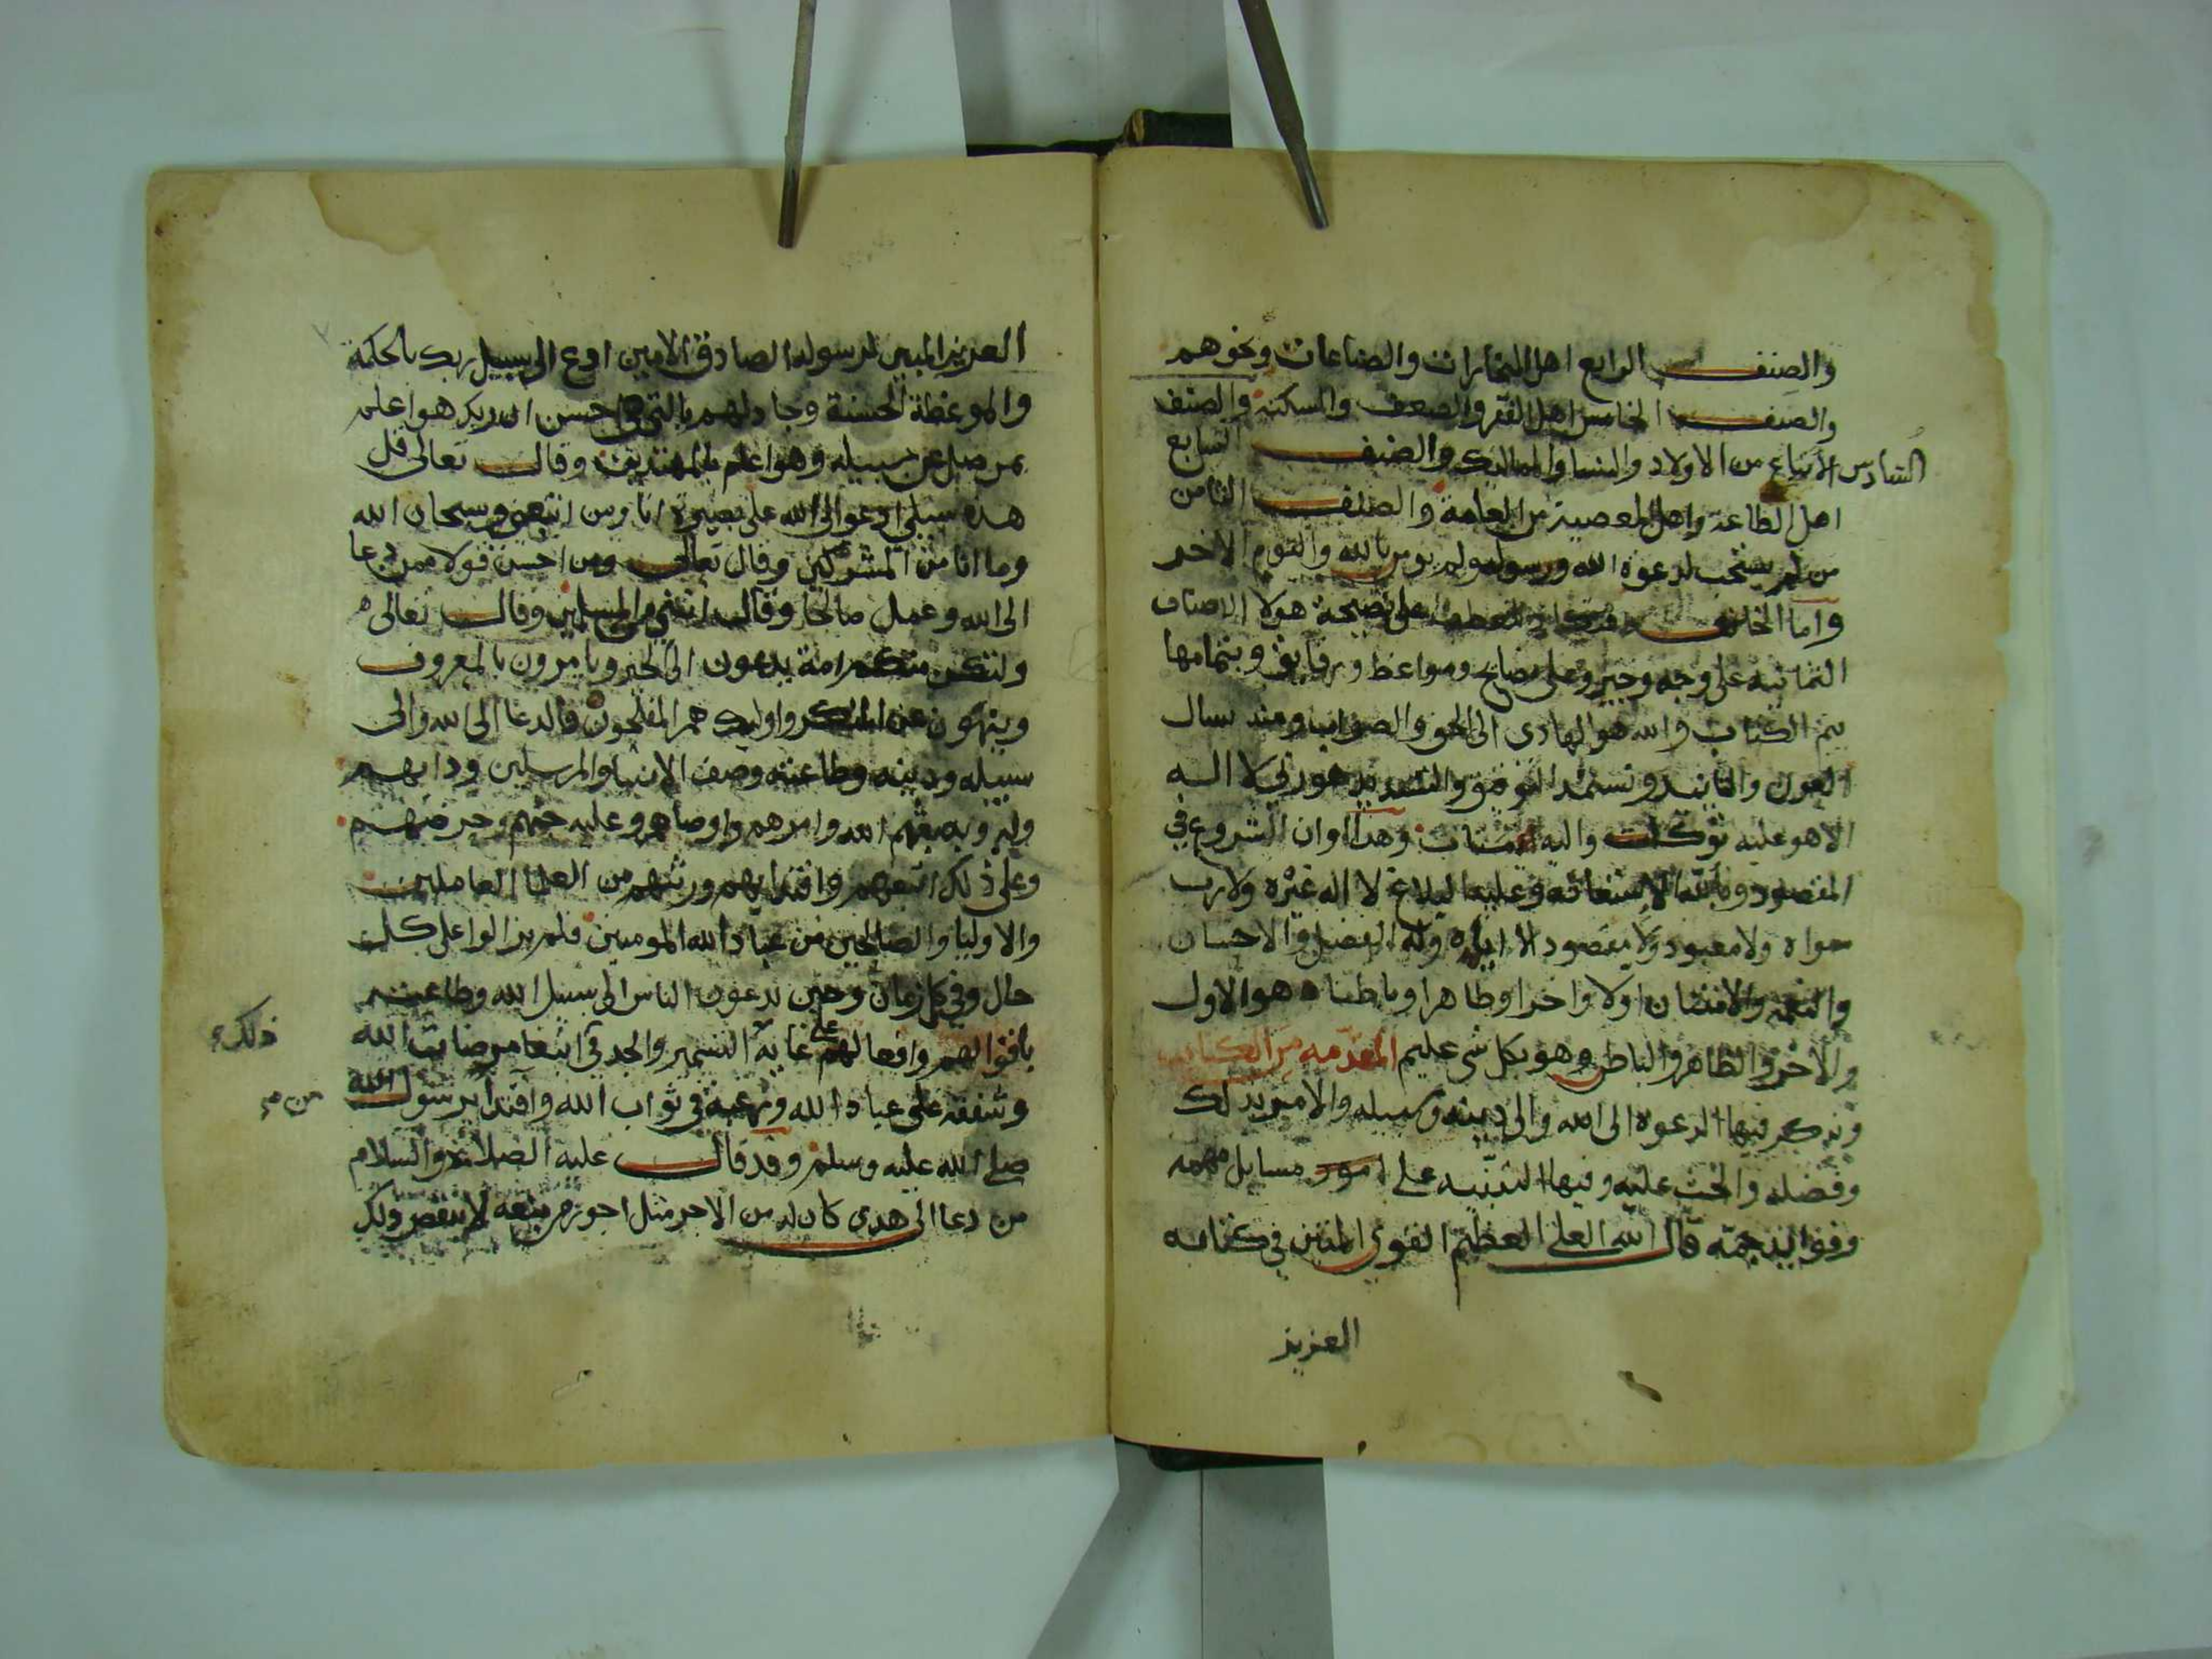 والصنف الرابع اهل التجارات والصناعات ونحوهم
والصنف الخامس اهل الفقر والضعف والمسكنة والصنف
السادس الاتباع من الاولاد والنسا والمماليك والصنف السابع
اهل الطاعة واهل المعصية من العامة والصنف الثامن
من لم يستجب لدعوة الله ورسوله ولم يومن بالله واليوم الاخر
واما الخاتمة على نصيحة هولا الاصناف
الثمانية على وجه وجيز وعلى نصايح ومواعظ ورقايق وبتمامها
يتم الكتاب والله هو الهادى الى الحق والصواب ومنه نسال
العون والتاييد ونستمد التوفيق والتسديد هو ربي لا اله
الا هو عليه توكلت واليه متاب وهذا اوان الشروع في
المقصود وبالله الاستعانه وعليه البلاغ لا اله غيره ولا رب
سواه ولا معبود ولا مقصود الا اياه وله الفضل والاحسان
والنعمة والامتنان اولا واخرا وظاهرا وباطنا هو الاول
والاخر والظاهر والباطن وهو بكل شى عليم المقدمه من الكتاب
ونذكر فيها الدعوة الى الله والى دينه وسبيله والامر بذلك
وفضله والحث عليه وفيها التنبيه على امور مسايل مهمه
وفق الترجمة قال الله العلي العظيم القوي المتين في كتابه
العزيز
العزيز المبين لرسوله الصادق الامين ادع الى سبيل ربك بالحكمة
والموعظة الحسنة وجادلهم بالتي هي احسن ان ربك هو اعلم
بمن ضل عن سبيله وهو اعلم بالمهتدين وقال تعالى قل
هذه سبيلي ادعوا الى الله على بصيرة انا ومن اتبعني وسبحان الله
وما انا من المشركين وقال تعالى ومن احسن قولا ممن دعا
الى الله وعمل صالحا وقال انني من المسلمين وقال تعالى
ولتكن منكم امة يدعون الى الخير ويامرون بالمعروف
وينهون عن المنكر واوليك هم المفلحون فالدعا الى الله والى
سبيله ودينه وطاعته وصف الانبيا والمرسلين ودابهم
وله وبه بعثهم الله وامرهم واوصاهم وعليه حثهم وحرضهم
وعلى ذلك اتبعهم واقتدا بهم ورثتهم من العلما العاملين
والاوليا والصالحين من عباد الله المومنين فلم يزالوا على كل
حال وفي كل زمان وحين يدعون الناس الى سبيل الله وطاعته
باقوالهم وافعالهم على غاية التشمير والجد في ابتغا مرضات الله
ذلك
وشفقة على عباد الله ورغبة في ثواب الله واقتدا برسول الله
صلى الله عليه وسلم وقد قال عليه الصلاة والسلام
من دعا الى هدى كان له من الاجر مثل اجور من يتبعه لا ينقص ذلك
من